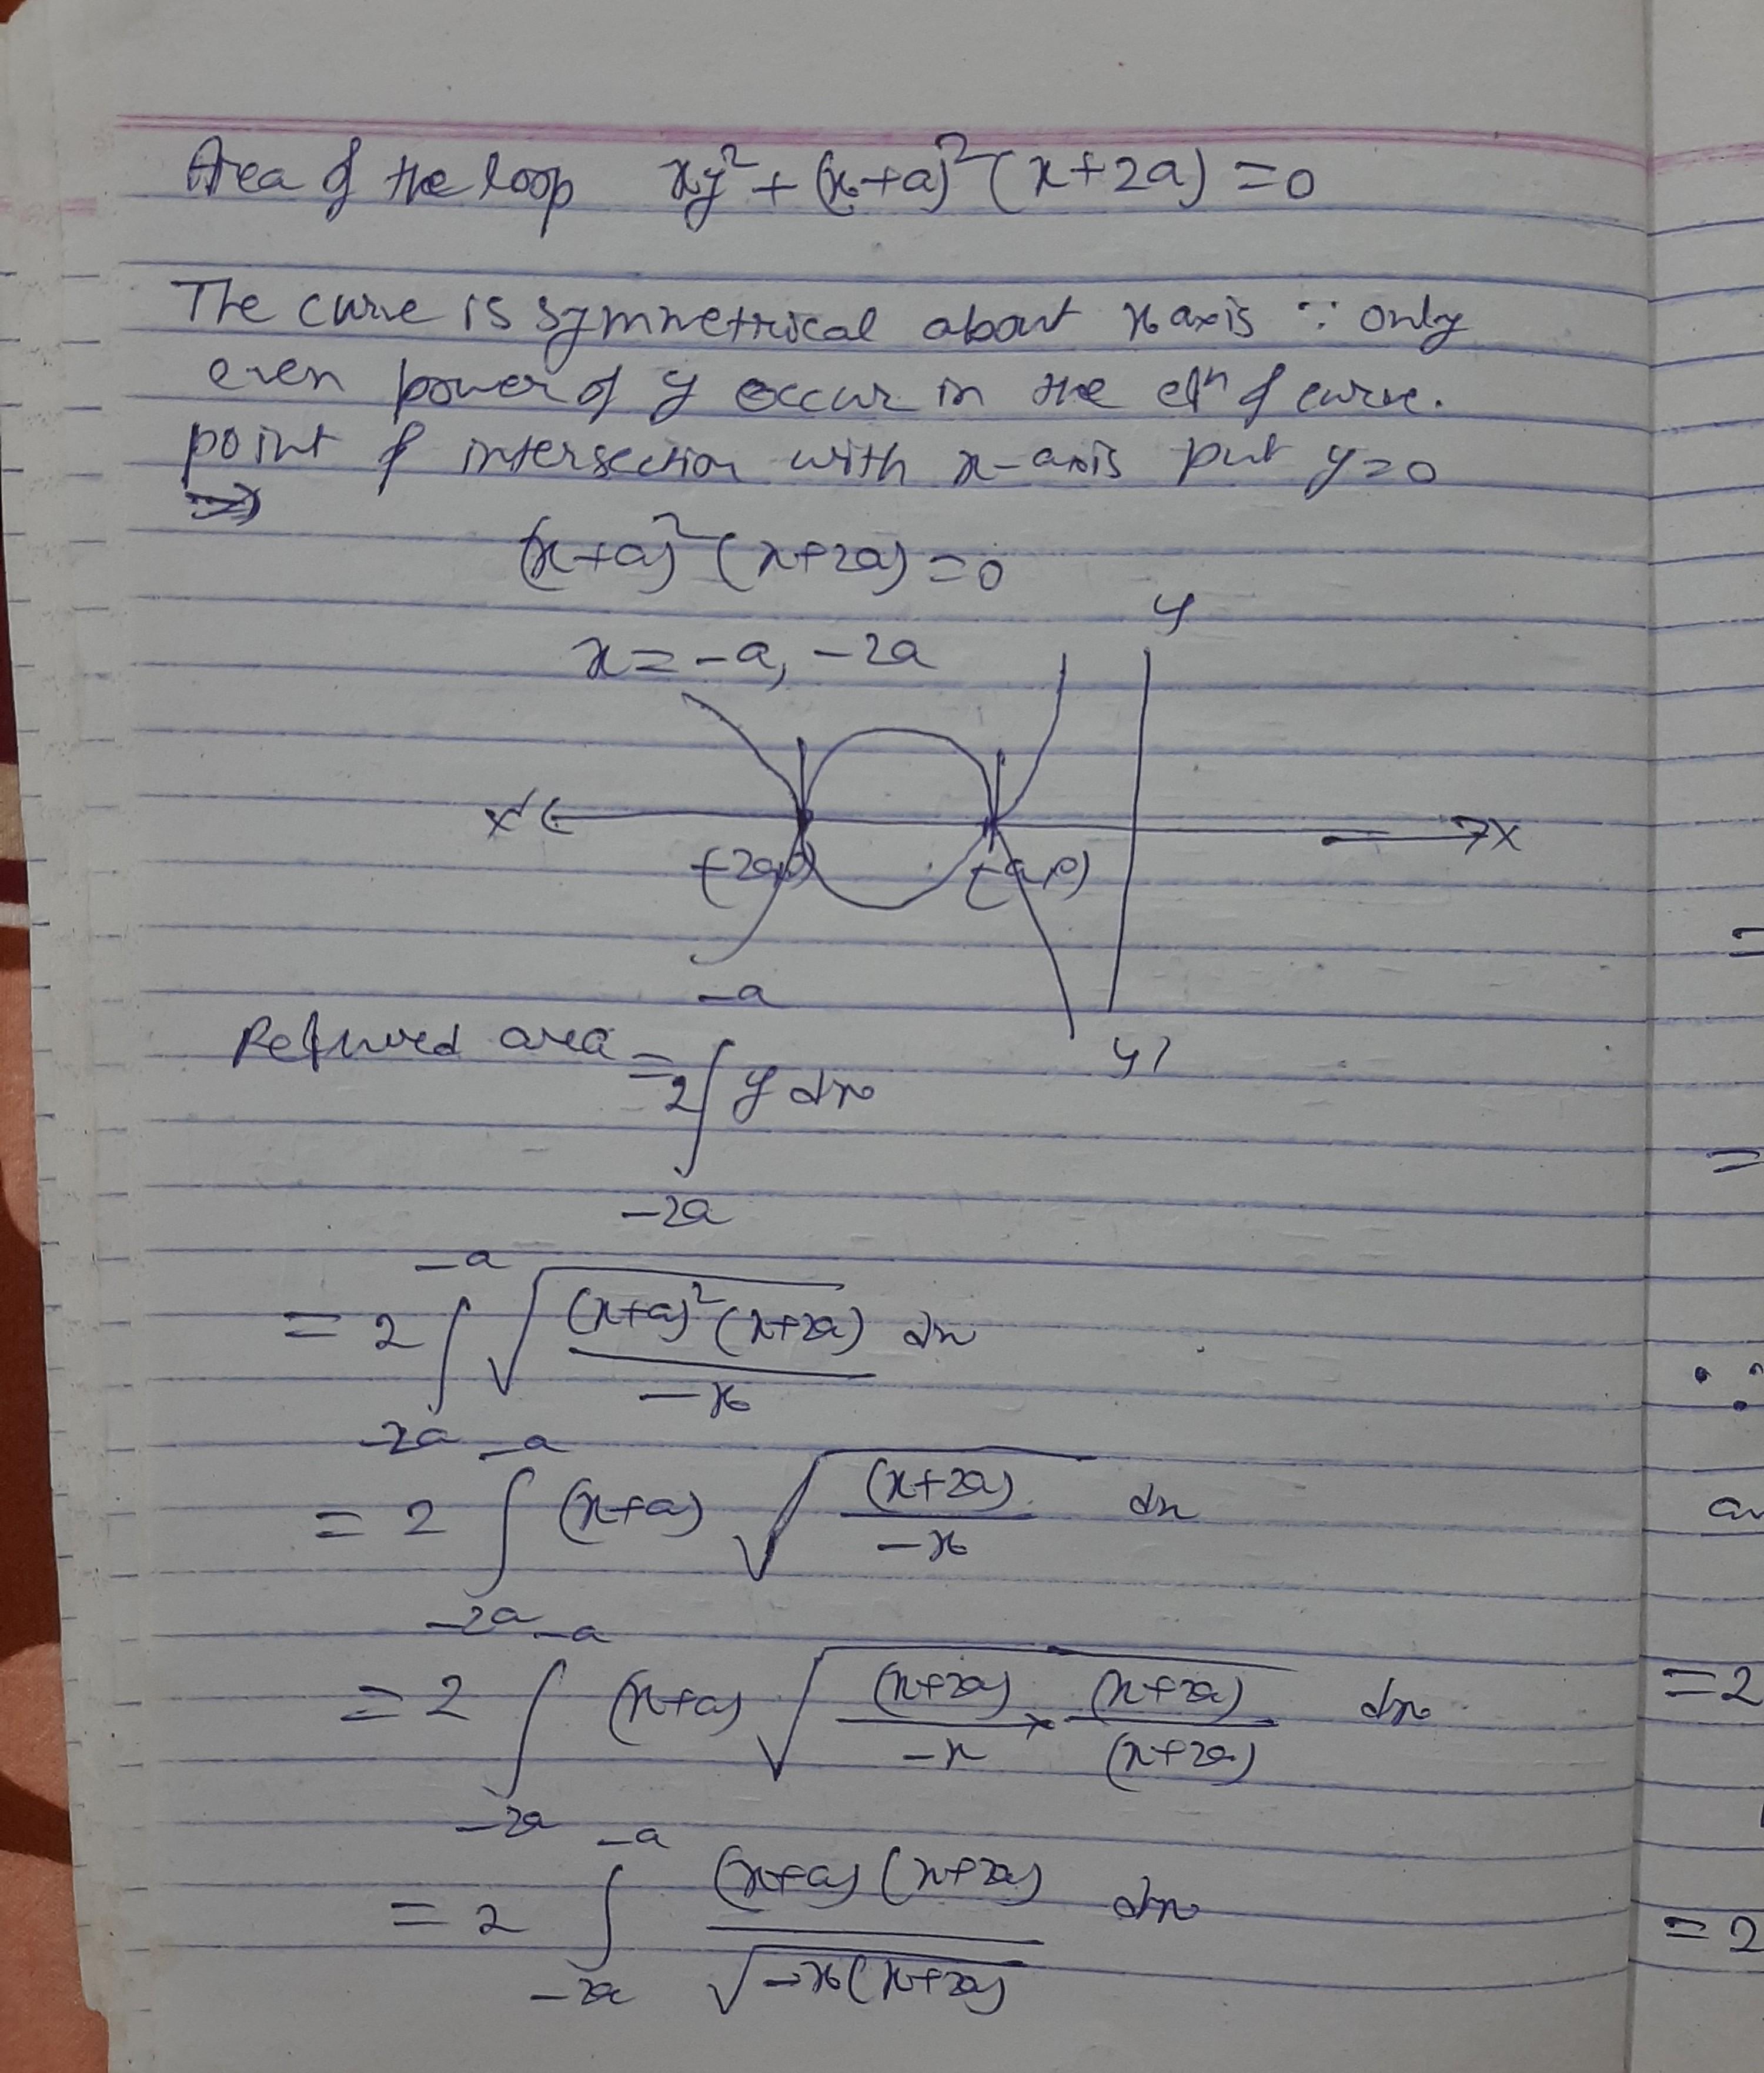 Area of the loop xy² + (x+a)² (x+2a) = 0
The curve is symmetrical about x axis ∵ only
even power of y occur in the eqn of curve.
point of intersection with x-axis put y=0
⇒
(x+a)² (x+2a) = 0
x = -a, -2a
y
x' x
(-2a,0) (-a,0)
y'
Required area = 2 ∫_{-2a}^{-a} y dx
= 2 ∫_{-2a}^{-a} √((x+a)² (x+2a) / -x) dx
= 2 ∫_{-2a}^{-a} (x+a) √((x+2a) / -x) dx
= 2 ∫_{-2a}^{-a} (x+a) √((x+2a) / -x × (x+2a) / (x+2a)) dx
= 2 ∫_{-2a}^{-a} (x+a) (x+2a) / √(-x(x+2a)) dx
=
=
∵
= 2
= 2